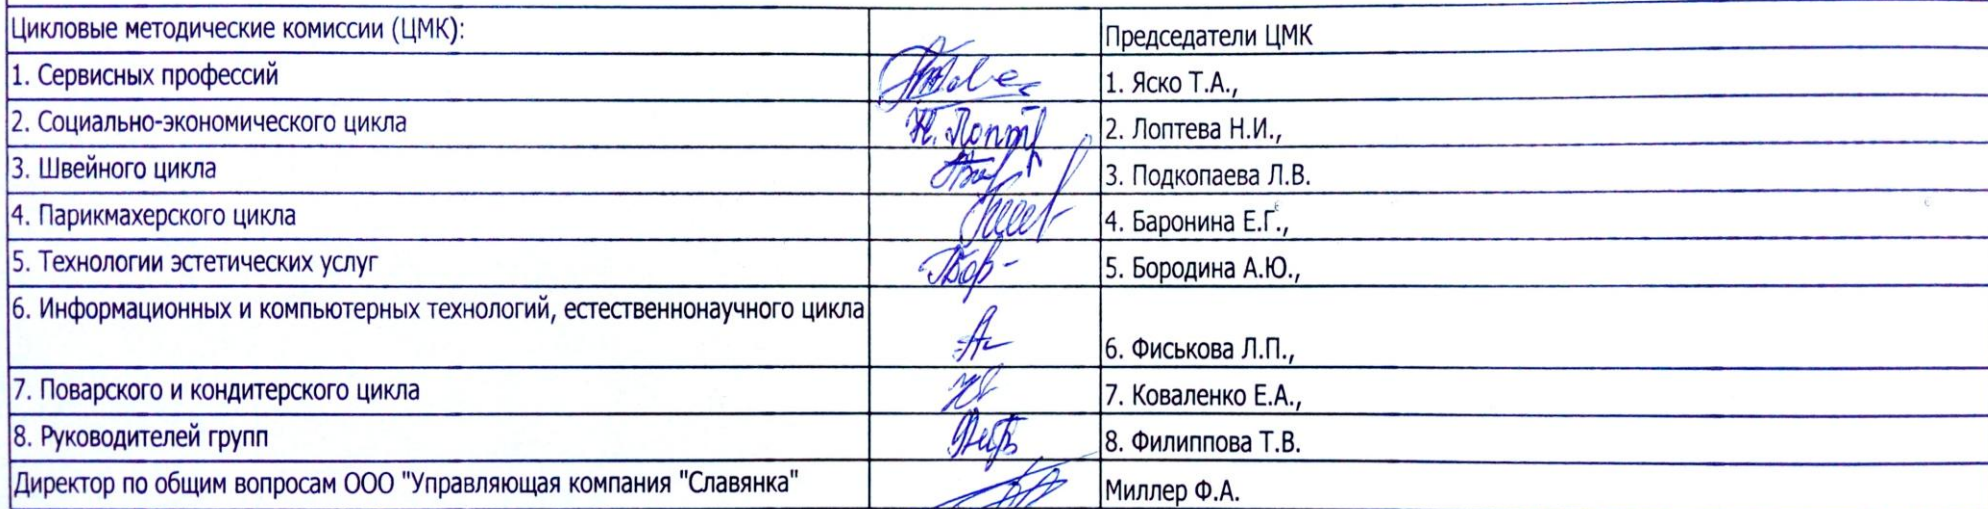 Цикловые методические комиссии (ЦМК): Председатели ЦМК
1. Сервисных профессий 1. Яско Т.А.,
2. Социально-экономического цикла Н. Лопт 2. Лоптева Н.И.,
3. Швейного цикла 3. Подкопаева Л.В.
4. Парикмахерского цикла 4. Баронина Е.Г.,
5. Технологии эстетических услуг 5. Бородина А.Ю.,
6. Информационных и компьютерных технологий, естественнонаучного цикла 6. Фиськова Л.П.,
7. Поварского и кондитерского цикла 7. Коваленко Е.А.,
8. Руководителей групп 8. Филиппова Т.В.
Директор по общим вопросам ООО "Управляющая компания "Славянка" Миллер Ф.А.